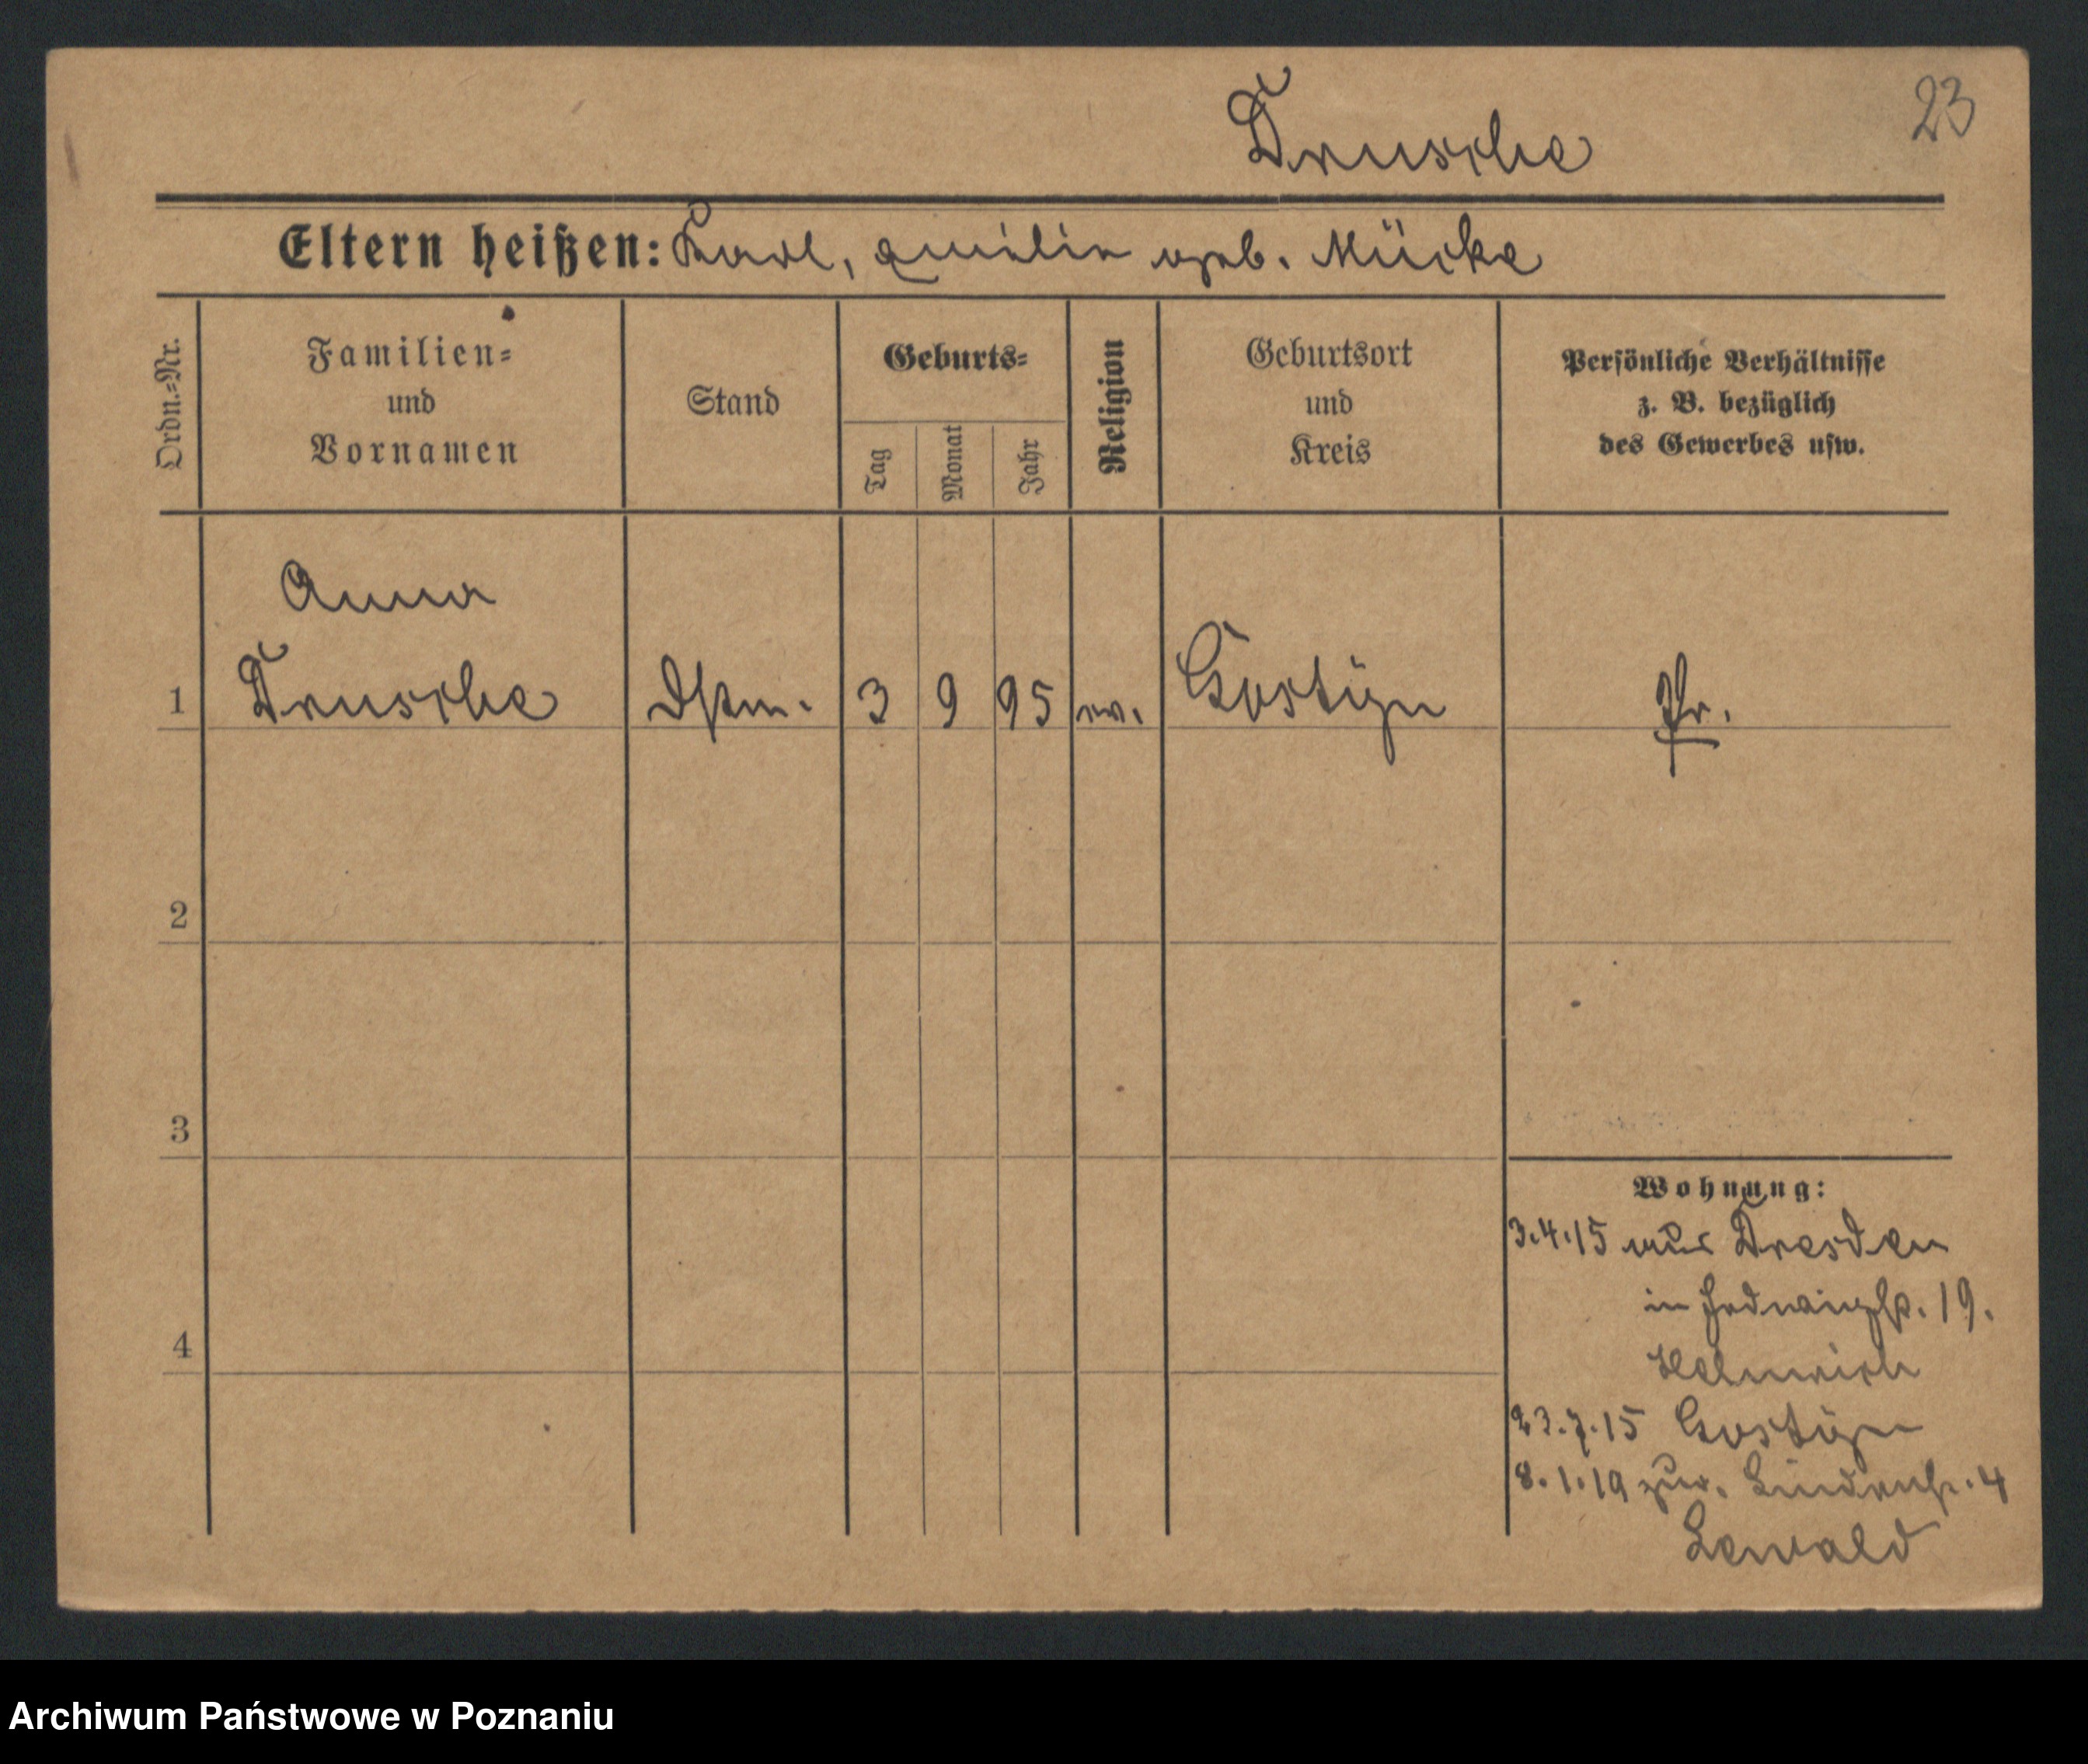 23
Drusche
Eltern heißen: Karl, Emilie geb. Mücke
Ordn.-Nr.
Familien-
und
Vornamen
Stand
Geburts-
Tag
Monat
Jahr
Religion
Geburtsort
und
Kreis
Persönliche Verhältnisse
z. B. bezüglich
des Gewerbes usw.
Anna
1 Drusche Dstm. 3 9 95 ev. Gostyn Pr.
2
3
4
Wohnung:
3.4.15 aus Dresden
in Hedwigstr. 19.
23.7.15 Gostyn
8.1.19 zur. Lindenstr. 4
Lewald
Archiwum Państwowe w Poznaniu